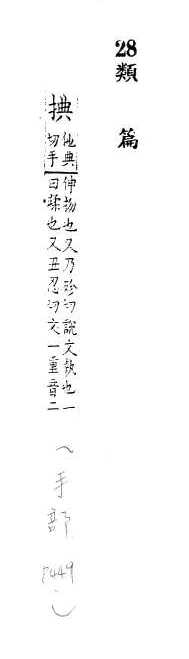 28類篇
捵
他典
切手
伸物也又乃殄切說文執也一
曰蹂也又丑忍切文一重音二
(手部 )